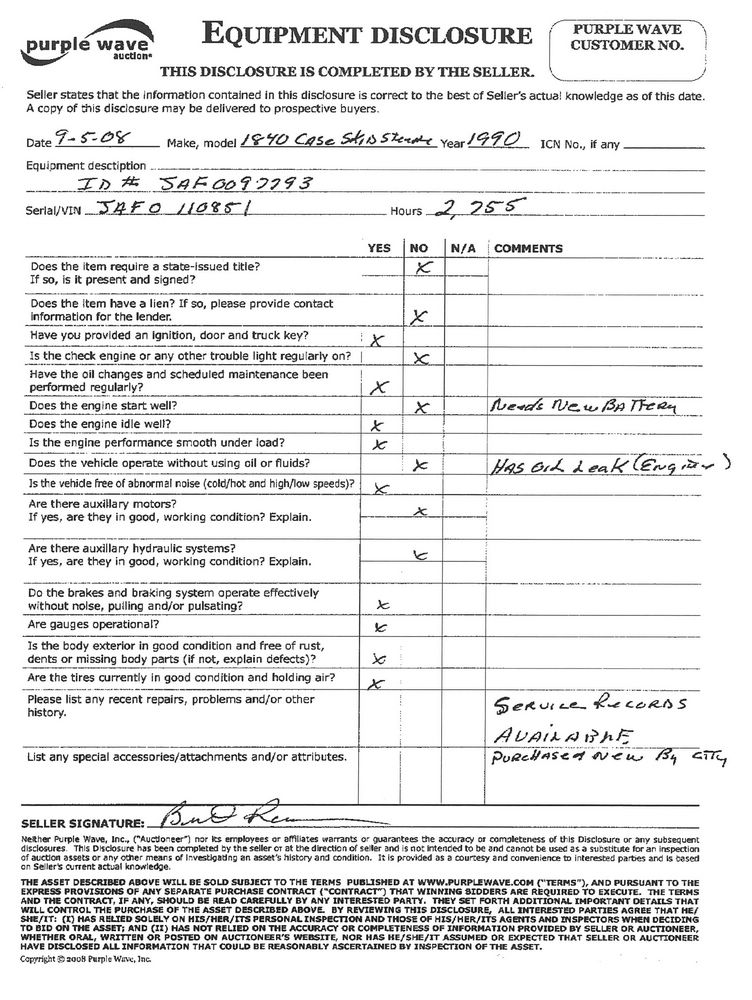 purple wave
auction
EQUIPMENT DISCLOSURE
PURPLE WAVE
CUSTOMER NO.
THIS DISCLOSURE IS COMPLETED BY THE SELLER.
Seller states that the information contained in this disclosure is correct to the best of Seller's actual knowledge as of this date.
A copy of this disclosure may be delivered to prospective buyers.
Date 9-5-08 Make, model 1840 Case Skid Steer Year 1990 ICN No., if any
Equipment desctiption
ID # JAF0097793
Serial/VIN JAF0 110851 Hours 2,755
YES NO N/A COMMENTS
Does the item require a state-issued title? X
If so, is it present and signed?
Does the item have a lien? If so, please provide contact
information for the lender. X
Have you provided an ignition, door and truck key? X
Is the check engine or any other trouble light regularly on? X
Have the oil changes and scheduled maintenance been
performed regularly? X
Does the engine start well? X Needs New BATTery
Does the engine idle well? X
Is the engine performance smooth under load? X
Does the vehicle operate without using oil or fluids? X HAS OIL Leak (Engine)
Is the vehicle free of abnormal noise (cold/hot and high/low speeds)? X
Are there auxillary motors? X
If yes, are they in good, working condition? Explain.
Are there auxillary hydraulic systems? X
If yes, are they in good, working condition? Explain.
Do the brakes and braking system operate effectively
without noise, pulling and/or pulsating? X
Are gauges operational? X
Is the body exterior in good condition and free of rust,
dents or missing body parts (if not, explain defects)? X
Are the tires currently in good condition and holding air? X
Please list any recent repairs, problems and/or other SERVICE RECORDS
history.
AVAILABLE
List any special accessories/attachments and/or attributes. PURCHASED NEW By CITy
SELLER SIGNATURE:
Neither Purple Wave, Inc., ("Auctioneer") nor its employees or affiliates warrants or guarantees the accuracy or completeness of this Disclosure or any subsequent
disclosures. This Disclosure has been completed by the seller or at the direction of seller and is not intended to be and cannot be used as a substitute for an inspection
of auction assets or any other means of investigating an asset's history and condition. It is provided as a courtesy and convenience to interested parties and is based
on Seller's current actual knowledge.
THE ASSET DESCRIBED ABOVE WILL BE SOLD SUBJECT TO THE TERMS PUBLISHED AT WWW.PURPLEWAVE.COM ("TERMS"), AND PURSUANT TO THE
EXPRESS PROVISIONS OF ANY SEPARATE PURCHASE CONTRACT ("CONTRACT") THAT WINNING BIDDERS ARE REQUIRED TO EXECUTE. THE TERMS
AND THE CONTRACT, IF ANY, SHOULD BE READ CAREFULLY BY ANY INTERESTED PARTY. THEY SET FORTH ADDITIONAL IMPORTANT DETAILS THAT
WILL CONTROL THE PURCHASE OF THE ASSET DESCRIBED ABOVE. BY REVIEWING THIS DISCLOSURE, ALL INTERESTED PARTIES AGREE THAT HE/
SHE/IT: (I) HAS RELIED SOLELY ON HIS/HER/ITS PERSONAL INSPECTION AND THOSE OF HIS/HER/ITS AGENTS AND INSPECTORS WHEN DECIDING
TO BID ON THE ASSET; AND (II) HAS NOT RELIED ON THE ACCURACY OR COMPLETENESS OF INFORMATION PROVIDED BY SELLER OR AUCTIONEER,
WHETHER ORAL, WRITTEN OR POSTED ON AUCTIONEER'S WEBSITE, NOR HAS HE/SHE/IT ASSUMED OR EXPECTED THAT SELLER OR AUCTIONEER
HAVE DISCLOSED ALL INFORMATION THAT COULD BE REASONABLY ASCERTAINED BY INSPECTION OF THE ASSET.
Copyright © 2008 Purple Wave, Inc.